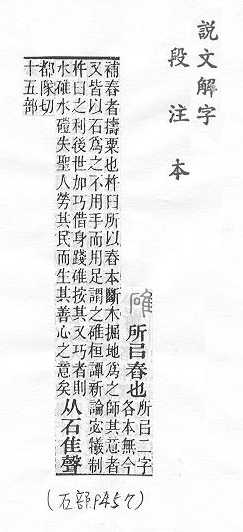 說文解字
段注本
碓 所㠯舂也 所㠯二字各本無今
補舂者擣粟也杵臼所以舂本斷木掘地爲之師其意者
又皆以石爲之不用手而用足謂之碓桓譚新論宓犧制
杵臼之利後世加巧借身踐碓按其又巧者則
水碓水磑失聖人勞其民而生其善心之意矣 从石隹聲
都隊切
十五部
(石部P457)